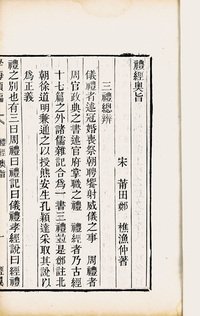 禮經奧旨
宋　莆田鄭　樵漁仲著
三禮總辨
儀禮者述冠婚喪祭朝聘饗射威儀之事　周禮者
周官政典之書述官府掌職之禮　禮經者乃古經
十七篇之外諸儒雜記合爲一書三禮並是鄭註北
朝徐道明兼通之以授熊安生孔穎達采取其說以
爲正義
禮之別也有三曰周禮曰禮記曰儀禮孝經說曰經禮
學海類編
禮經奧旨
一
經翼